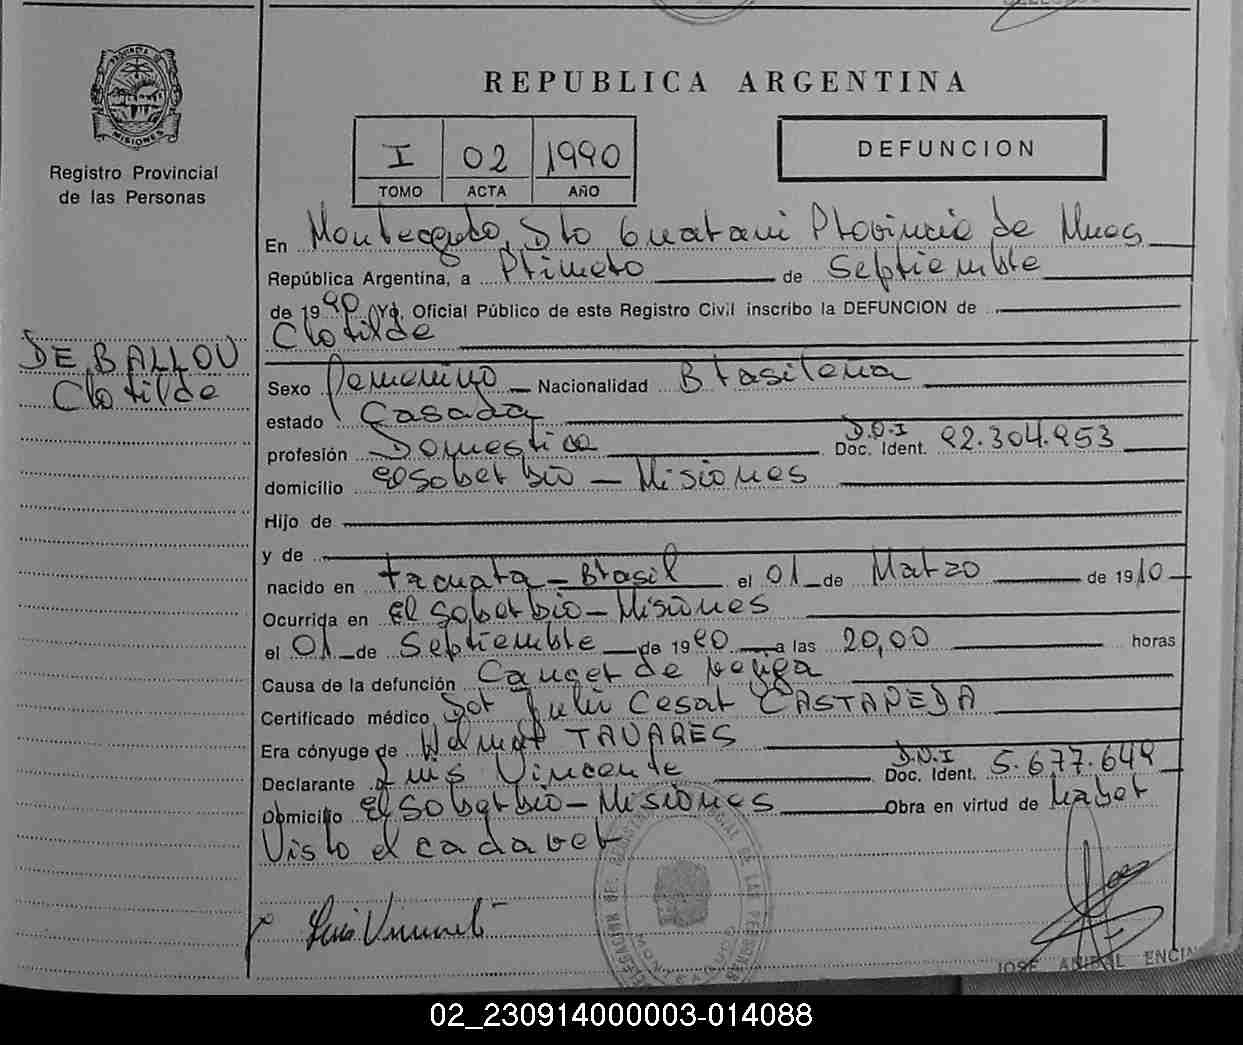 PROVINCIA DE
MISIONES
Registro Provincial
de las Personas
REPUBLICA ARGENTINA
I 02 1990
TOMO ACTA AÑO
DEFUNCION
En Monteagudo, Dto Guarani Provincia de Mnes
República Argentina, a Primero de Septiembre
de 1990 Yo, Oficial Público de este Registro Civil inscribo la DEFUNCION de
Clotilde
DE BALLOU
Clotilde
Sexo Femenino Nacionalidad Brasileña
estado Casada
profesión Domestica D.N.I Doc. Ident. 92.304.953
domicilio El Soberbio - Misiones
Hijo de
y de
nacido en tacuara - Brasil el 01 de Marzo de 1910
Ocurrida en El Soberbio - Misiones
el 01 de Septiembre de 1990 a las 20,00 horas
Causa de la defunción Cancer de
Certificado médico Dor Julio Cesar CASTAÑEDA
Era cónyuge de TAVARES
Declarante Luis Vincente D.N.I Doc. Ident. 5.677.649
Domicilio El Soberbio - Misiones Obra en virtud de haber
Visto el cadaver
Luis Vincent
JOSE ANIBAL ENCI
02_230914000003-014088